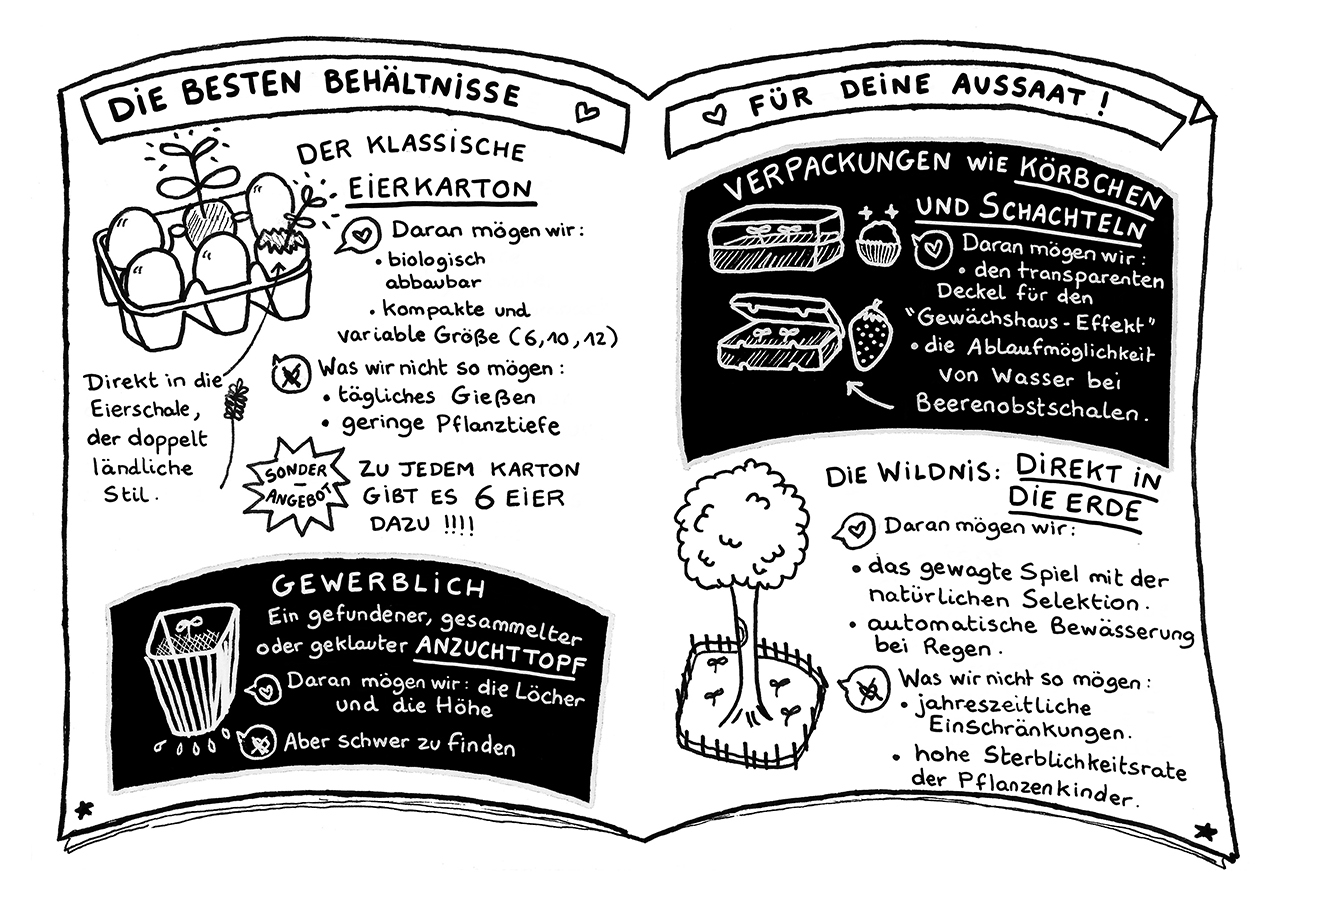 DIE BESTEN BEHÄLTNISSE
DER KLASSISCHE
EIERKARTON
Daran mögen wir:
• biologisch
abbaubar
• kompakte und
variable Größe (6,10,12)
Was wir nicht so mögen:
• tägliches Gießen
• geringe Pflanztiefe
Direkt in die
Eierschale,
der doppelt
ländliche
Stil.
SONDER
-
ANGEBOT
ZU JEDEM KARTON
GIBT ES 6 EIER
DAZU !!!!
GEWERBLICH
Ein gefundener, gesammelter
oder geklauter ANZUCHTTOPF
Daran mögen wir: die Löcher
und die Höhe
Aber schwer zu finden
FÜR DEINE AUSSAAT!
VERPACKUNGEN WIE KÖRBCHEN
UND SCHACHTELN
Daran mögen wir:
• den transparenten
Deckel für den
"Gewächshaus-Effekt"
• die Ablaufmöglichkeit
von Wasser bei
Beerenobstschalen.
DIE WILDNIS: DIREKT IN
DIE ERDE
Daran mögen wir:
• das gewagte Spiel mit der
natürlichen Selektion.
• automatische Bewässerung
bei Regen.
Was wir nicht so mögen:
• jahreszeitliche
Einschränkungen.
• hohe Sterblichkeitsrate
der Pflanzenkinder.